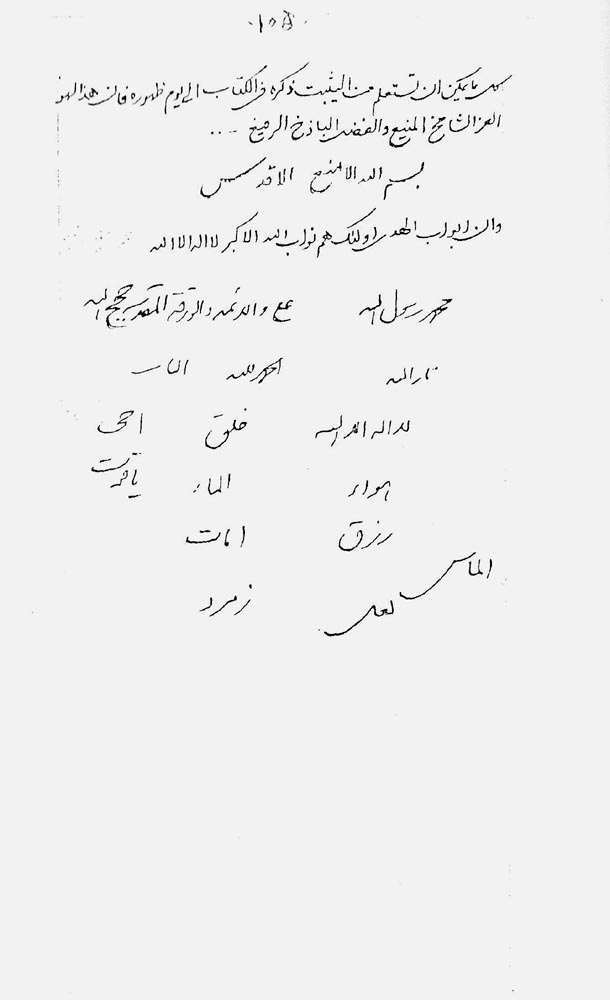 ١٠٥
كل ما يمكن ان تستعلم من البيت ذكره فى الكتاب الى يوم ظهوره فان هذا لهو
العز الشامخ المنيع والفضل الباذخ الرفيع ...
بسم الله الامنع الاقدس
وان ابواب الهدى اولئك هم نواب الله الاكبر لا اله الا الله
محمد رسول الله علي والائمه والورقة المقدسه حجج الله
نار الله الحمدلله النار
لا اله الا الله خلق احى
الهواء الماء ياقوت
رزق امات
الماس
لعل زمرد